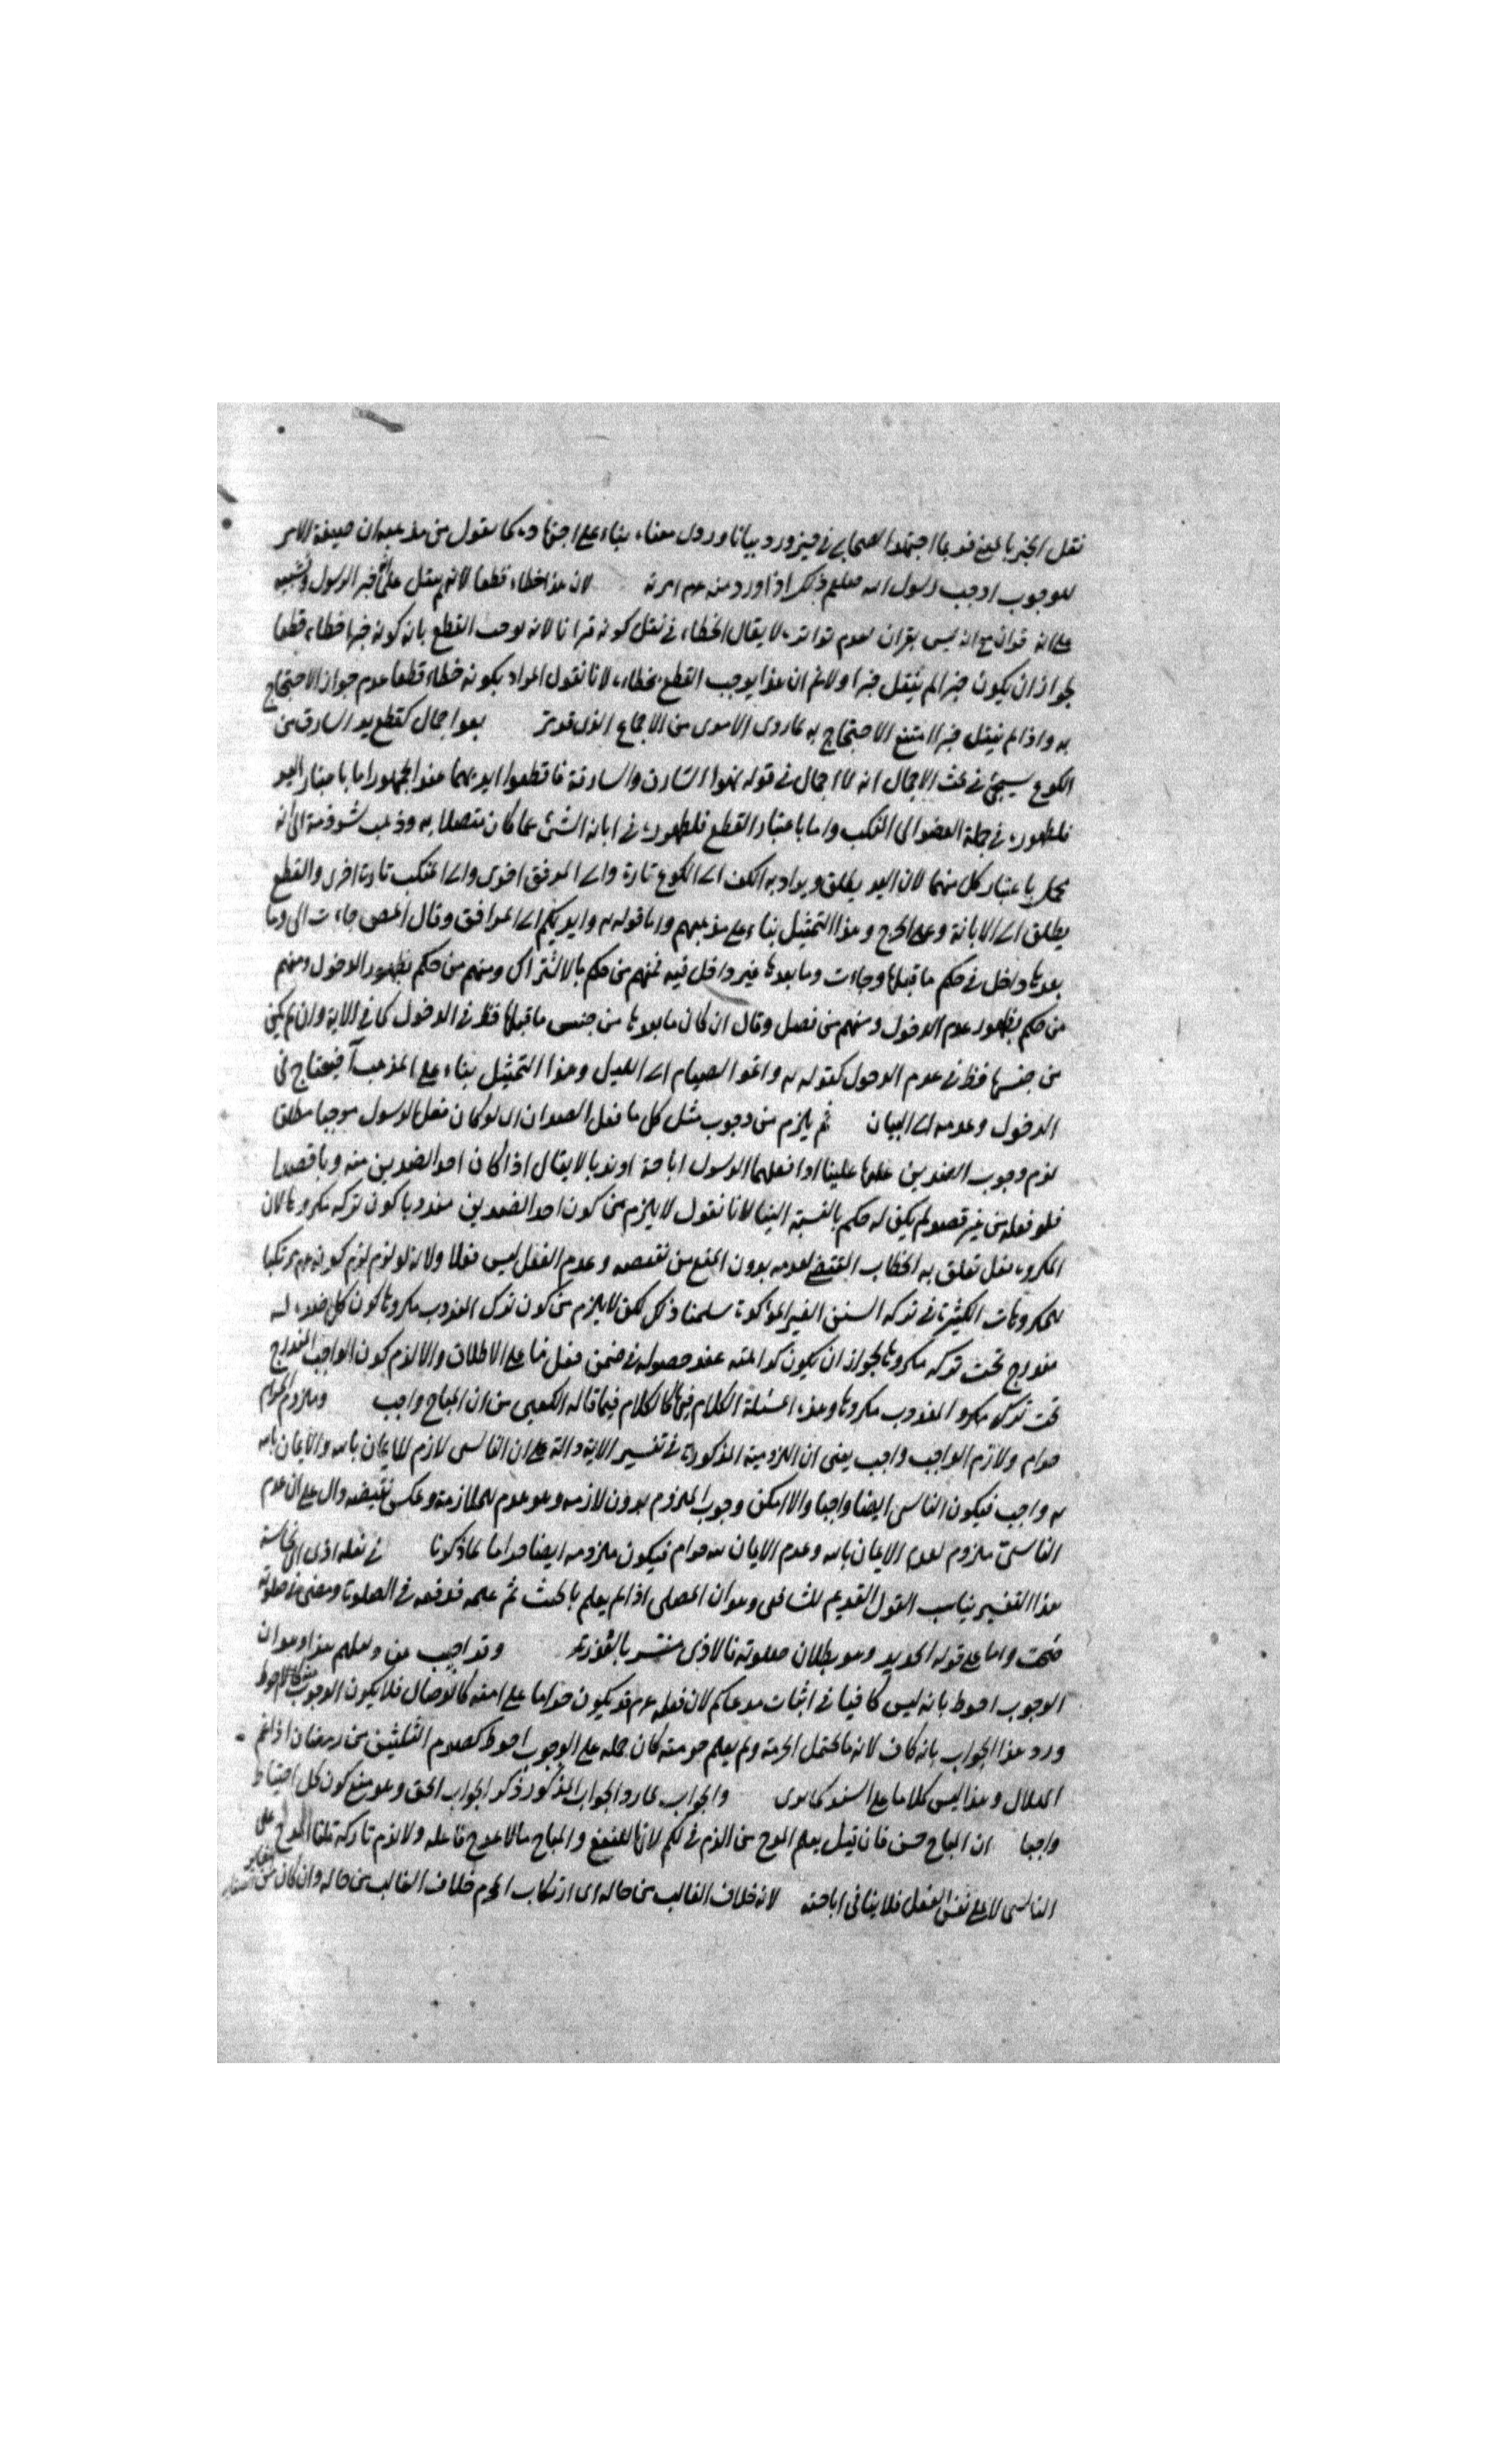 نقل الخبر بالمعنى فربما اجتهد الصحابي في خبر ورد بيانا وروى معناه بناء على اجتهاده كما يقول من مذهبه ان صيغة الامر
للوجوب اوجب رسول الله صلعم ذلك اذا ورد منه عم امر به لان هذا خطاء قطعا لانه لم ينقل على انه خبر الرسول
على انه قران مع انه ليس بقران لعدم تواتره لا يقال الخطاء في نقل كونه قرانا لانه يوجب القطع بان كونه خبرا خطاء قطعا
لجواز ان يكون خبرا لم ينقل خبرا ولا نم ان هذا يوجب القطع بخطاء لانا نقول المراد بكونه خطاء قطعا عدم جواز الاحتجاج
به واذا لم ينقل خبرا امتنع الاحتجاج به لما روى الامدى من الاجماع الذى قرر بعد اجمال كقطع يد السارق من
الكوع سيجئ في بحث الاجمال انه لا اجمال في قوله تعالى السارق والسارقة فاقطعوا ايديهما عند الجمهور اما باعتبار اليد
فلظهوره في جملة العضو الى المنكب واما باعتبار القطع فلظهوره في ابانة الشئ عما كان متصلا به وذهب شرذمة الى انه
مجمل باعتبار كل منهما لان اليد يطلق ويراد به الكف الى الكوع تارة والى المرفق اخرى والى المنكب تارة اخرى والقطع
يطلق على الابانة وعلى الجرح وهذا التمثيل بناء على مذهبهم واما قوله تع وايديكم الى المرافق وقال المص جاءت الى وما
بعدها داخل في حكم ما قبلها وجاءت وما بعدها غير داخل فيه فمنهم من حكم بالاشتراك ومنهم من حكم بظهور الدخول ومنهم
من حكم بظهور عدم الدخول ومنهم من فصل وقال ان كان ما بعدها من جنس ما قبلها فظ في الدخول كما في الاية وان لم يكن
من جنسها فظ في عدم الدخول كقوله تع واتموا الصيام الى الليل وهذا التمثيل بناء على المذهب فيحتاج في
الدخول وعدمه الى البيان ثم يلزم من وجوب مثل كل ما فعل الضدان اى لو كان فعل الرسول موجبا مطلقا
لزم وجوب الضدين علينا اذا فعلهما الرسول اباحة او ندبا لا يقال اذا كان احد الضدين مندوبا قصدا
فلو فعله من غير قصد لم يكن له حكم بالنسبة الينا لانا نقول لا يلزم من كون احد الضدين مندوبا كون تركه مكروها لان
المكروه فعل تعلق به الخطاب المقتضى لعدمه بدون المنع من نقيضه وعدم الفعل ليس فعلا ولانه لو لزم لزم كونه عم مرتكبا
للمكروهات الكثيرة في تركه السنن الغير المؤكدة سلمنا ذلك لكن لا يلزم من كون ترك المندوب مكروها كون كل ضد له
مندرج تحت تركه مكروها لجواز ان يكون كراهته عند حصوله في ضمن فعل ما على الاطلاق والا لزم كون الواجب المندرج
تحت ترك المندوب مكروها وهذه المسئلة الكلام فيها كالكلام فيما قاله الكعبى من ان المباح واجب وملزوم الحرام
حرام ولازم الواجب واجب يعنى ان اللزومية المذكورة في تفسير الاية دالة على ان التاسى لازم للايمان بالله والايمان بالله
تع واجب فيكون التاسى ايضا واجبا والا امكن وجوب الملزوم بدون لازمه وهو عدم للملازمة وعكس نقيضه دال على ان عدم
التاسى ملزوم لعدم الايمان بالله وعدم الايمان بالله حرام فيكون ملزومه ايضا حراما لما ذكرنا في نعله اذى اى نجاسة
هذا التفسير يناسب القول القديم للشافعى وهو ان المصلى اذا لم يعلم بالخبث ثم علمه فدفعه في الصلوة ومضى في صلوته
صحت واما على قوله الجديد وهو بطلان صلوته فالاذى مفسر بالقذرة وقد اجيب عن دليلهم هذا وهو ان
الوجوب احوط بانه ليس كافيا في اثبات مدعاكم لان فعله عم قد يكون حراما على امته كالوصال فلا يكون الوجوب احوط
ورد هذا الجواب بانه كاف لانه ما لم يحتمل الحرمة ولم يعلم حرمته كان حمله على الوجوب احوط كصوم الثلثين من رمضان اذا غم
الهلال وهذا ليس كلاما على السند كما ترى والجواب لما رد الجواب المذكور ذكر الجواب الحق وهو منع كون كل احتياط
واجبا ان المباح حسن فان قيل يعلم المدح من الذم في لكم لانها للنفع والمباح ما لا مدح فاعله ولا لزم تاركه قلنا المدح على
التاسى لا على نفس الفعل فلا ينافى اباحته لانه خلاف الغالب من حاله اى ارتكاب المحرم خلاف الغالب من حاله وان كان من